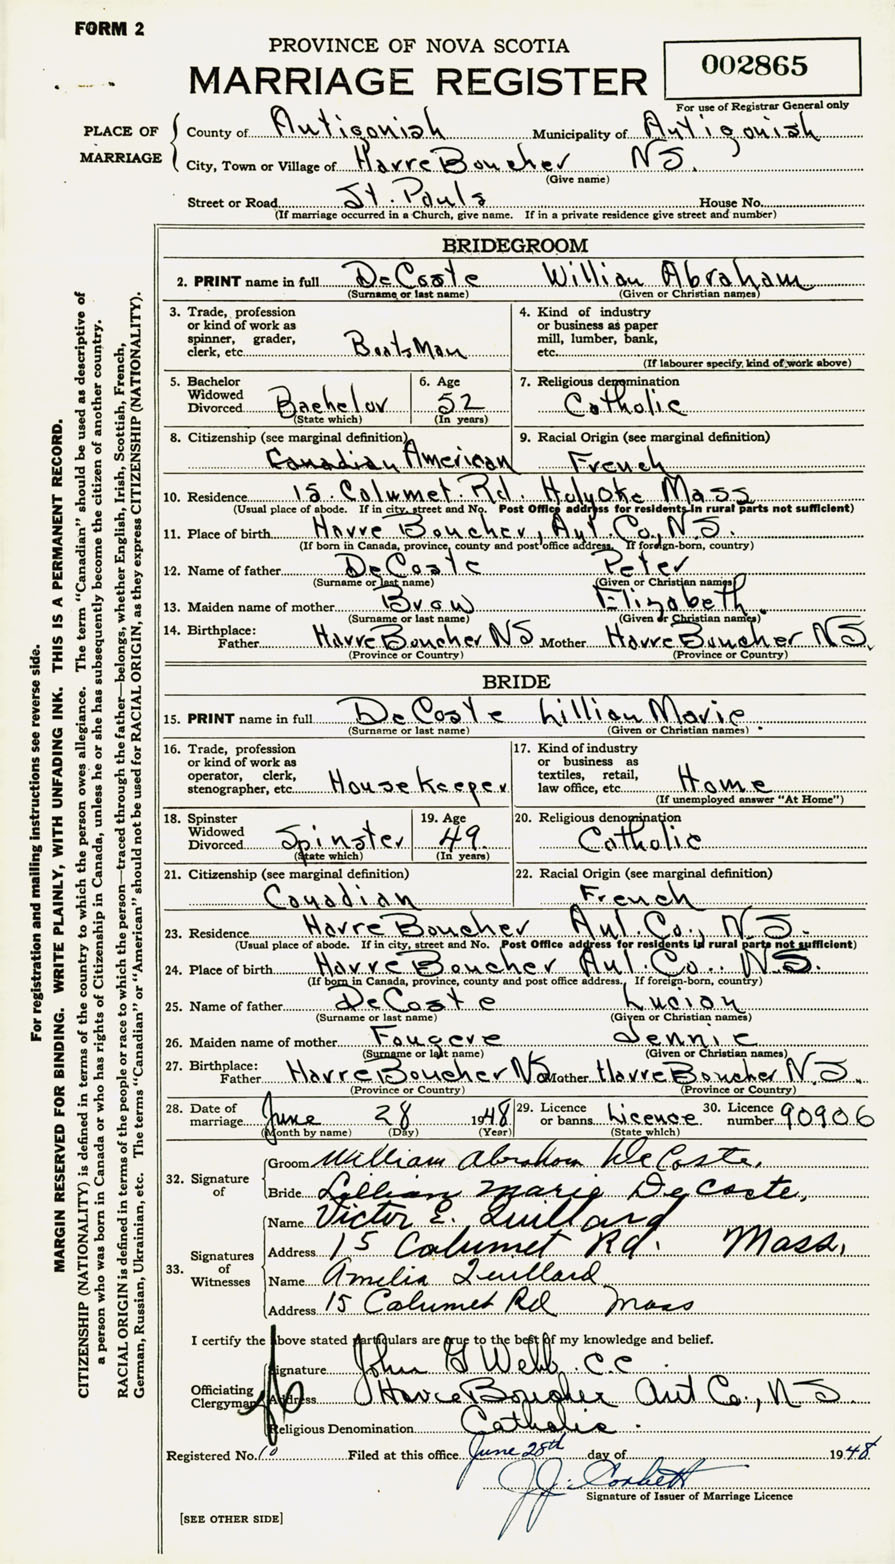 FORM 2
PROVINCE OF NOVA SCOTIA
MARRIAGE REGISTER
002865
For use of Registrar General only
PLACE OF MARRIAGE
County of Antigonish Municipality of Antigonish
City, Town or Village of Havre Boucher NS.
(Give name)
Street or Road St. Pauls House No.
(If marriage occurred in a Church, give name. If in a private residence give street and number)
BRIDEGROOM
2. PRINT name in full DeCoste William Abraham
(Surname or last name) (Given or Christian names)
3. Trade, profession or kind of work as spinner, grader, clerk, etc. Boats Man
4. Kind of industry or business as paper mill, lumber, bank, etc.
(If labourer specify, kind of work above)
5. Bachelor Widowed Divorced Bachelor
(State which)
6. Age 52
(In years)
7. Religious denomination Catholic
8. Citizenship (see marginal definition) Canadian American
9. Racial Origin (see marginal definition) French
10. Residence 15. Calumet Rd. Holyoke Mass
(Usual place of abode. If in city, street and No. Post Office address for residents in rural parts not sufficient)
11. Place of birth Havre Boucher, Ant. Co., N.S.
(If born in Canada, province, county and post office address. If foreign-born, country)
12. Name of father DeCoste Peter
(Surname or last name) (Given or Christian names)
13. Maiden name of mother Brow Elizabeth
(Surname or last name) (Given or Christian names)
14. Birthplace: Father Havre Boucher NS Mother Havre Boucher NS.
(Province or Country) (Province or Country)
BRIDE
15. PRINT name in full DeCoste Lillian Marie
(Surname or last name) (Given or Christian names)
16. Trade, profession or kind of work as operator, clerk, stenographer, etc. Housekeeper
17. Kind of industry or business as textiles, retail, law office, etc. Home
(If unemployed answer "At Home")
18. Spinster Widowed Divorced Spinster
(State which)
19. Age 49
(In years)
20. Religious denomination Catholic
21. Citizenship (see marginal definition) Canadian
22. Racial Origin (see marginal definition) French
23. Residence Havre Boucher Ant. Co., N.S.
(Usual place of abode. If in city, street and No. Post Office address for residents in rural parts not sufficient)
24. Place of birth Havre Boucher Ant. Co.. N.S.
(If born in Canada, province, county and post office address. If foreign-born, country)
25. Name of father DeCoste Lucion
(Surname or last name) (Given or Christian names)
26. Maiden name of mother Fougere Jennie
(Surname or last name) (Given or Christian names)
27. Birthplace: Father Havre Boucher NS Mother Havre Boucher N.S.
(Province or Country) (Province or Country)
28. Date of marriage June 28 1948
(Month by name) (Day) (Year)
29. Licence or banns Licence
(State which)
30. Licence number 90906
32. Signature of
Groom William Abraham DeCoste,
Bride Lillian Marie DeCoste,
33. Signatures of Witnesses
Name Victor E. Quillard
Address 15 Calumet Rd. Mass,
Name Amelia Quillard
Address 15 Calumet Rd Mass
I certify the above stated particulars are true to the best of my knowledge and belief.
Officiating Clergyman
Signature John G Webb. C.C.
Address Havre Boucher Ant Co., N S
Religious Denomination Catholic.
Registered No. 10 Filed at this office June 28th day of 1948
J.J. Corbett
Signature of Issuer of Marriage Licence
[SEE OTHER SIDE]
For registration and mailing instructions see reverse side.
MARGIN RESERVED FOR BINDING. WRITE PLAINLY, WITH UNFADING INK. THIS IS A PERMANENT RECORD.
CITIZENSHIP (NATIONALITY) is defined in terms of the country to which the person owes allegiance. The term "Canadian" should be used as descriptive of
a person who was born in Canada or who has rights of Citizenship in Canada, unless he or she has subsequently become the citizen of another country.
RACIAL ORIGIN is defined in terms of the people or race to which the person—traced through the father—belongs, whether English, Irish, Scottish, French,
German, Russian, Ukrainian, etc. The terms "Canadian" or "American" should not be used for RACIAL ORIGIN, as they express CITIZENSHIP (NATIONALITY).